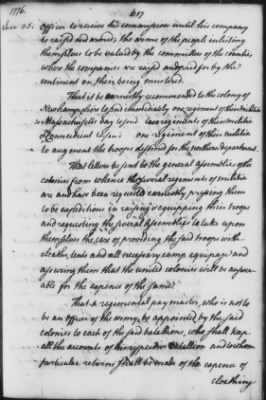 1776. 217
June 25. officer to receive his commission until his company
be raised and armed; the arms of the people inlisting
themselves to be valued by the committee of the counties
where the companies are raised and paid for by the
continent on their being mustered.
That it be earnestly recommended to the colony of
Newhampshire to send immediately one regiment of their militia
to Massachusetts bay to send two regiments of their militia
to Connecticut to send one regiment of their militia
to augment the troops destined for the northern department.
That letters be sent to the general assemblies of the
colonies from whence the several regiments of militia
are and have been requested earnestly pressing them
to be expeditious in raising & equipping their troops
and requesting the several assemblies to take upon
themselves the care of providing the said troops with
cloaths, tents and all necessary camp equipage and
assuring them that the united colonies will be answer
able for the expence of the same.
That a regimental pay master, who is not to
be an officer of the army, be appointed by the said
colonies to each of the said batallions, who shall keep
all the accounts of his respective batallion and to whom
particular returns shall be made of the expence of
cloathing